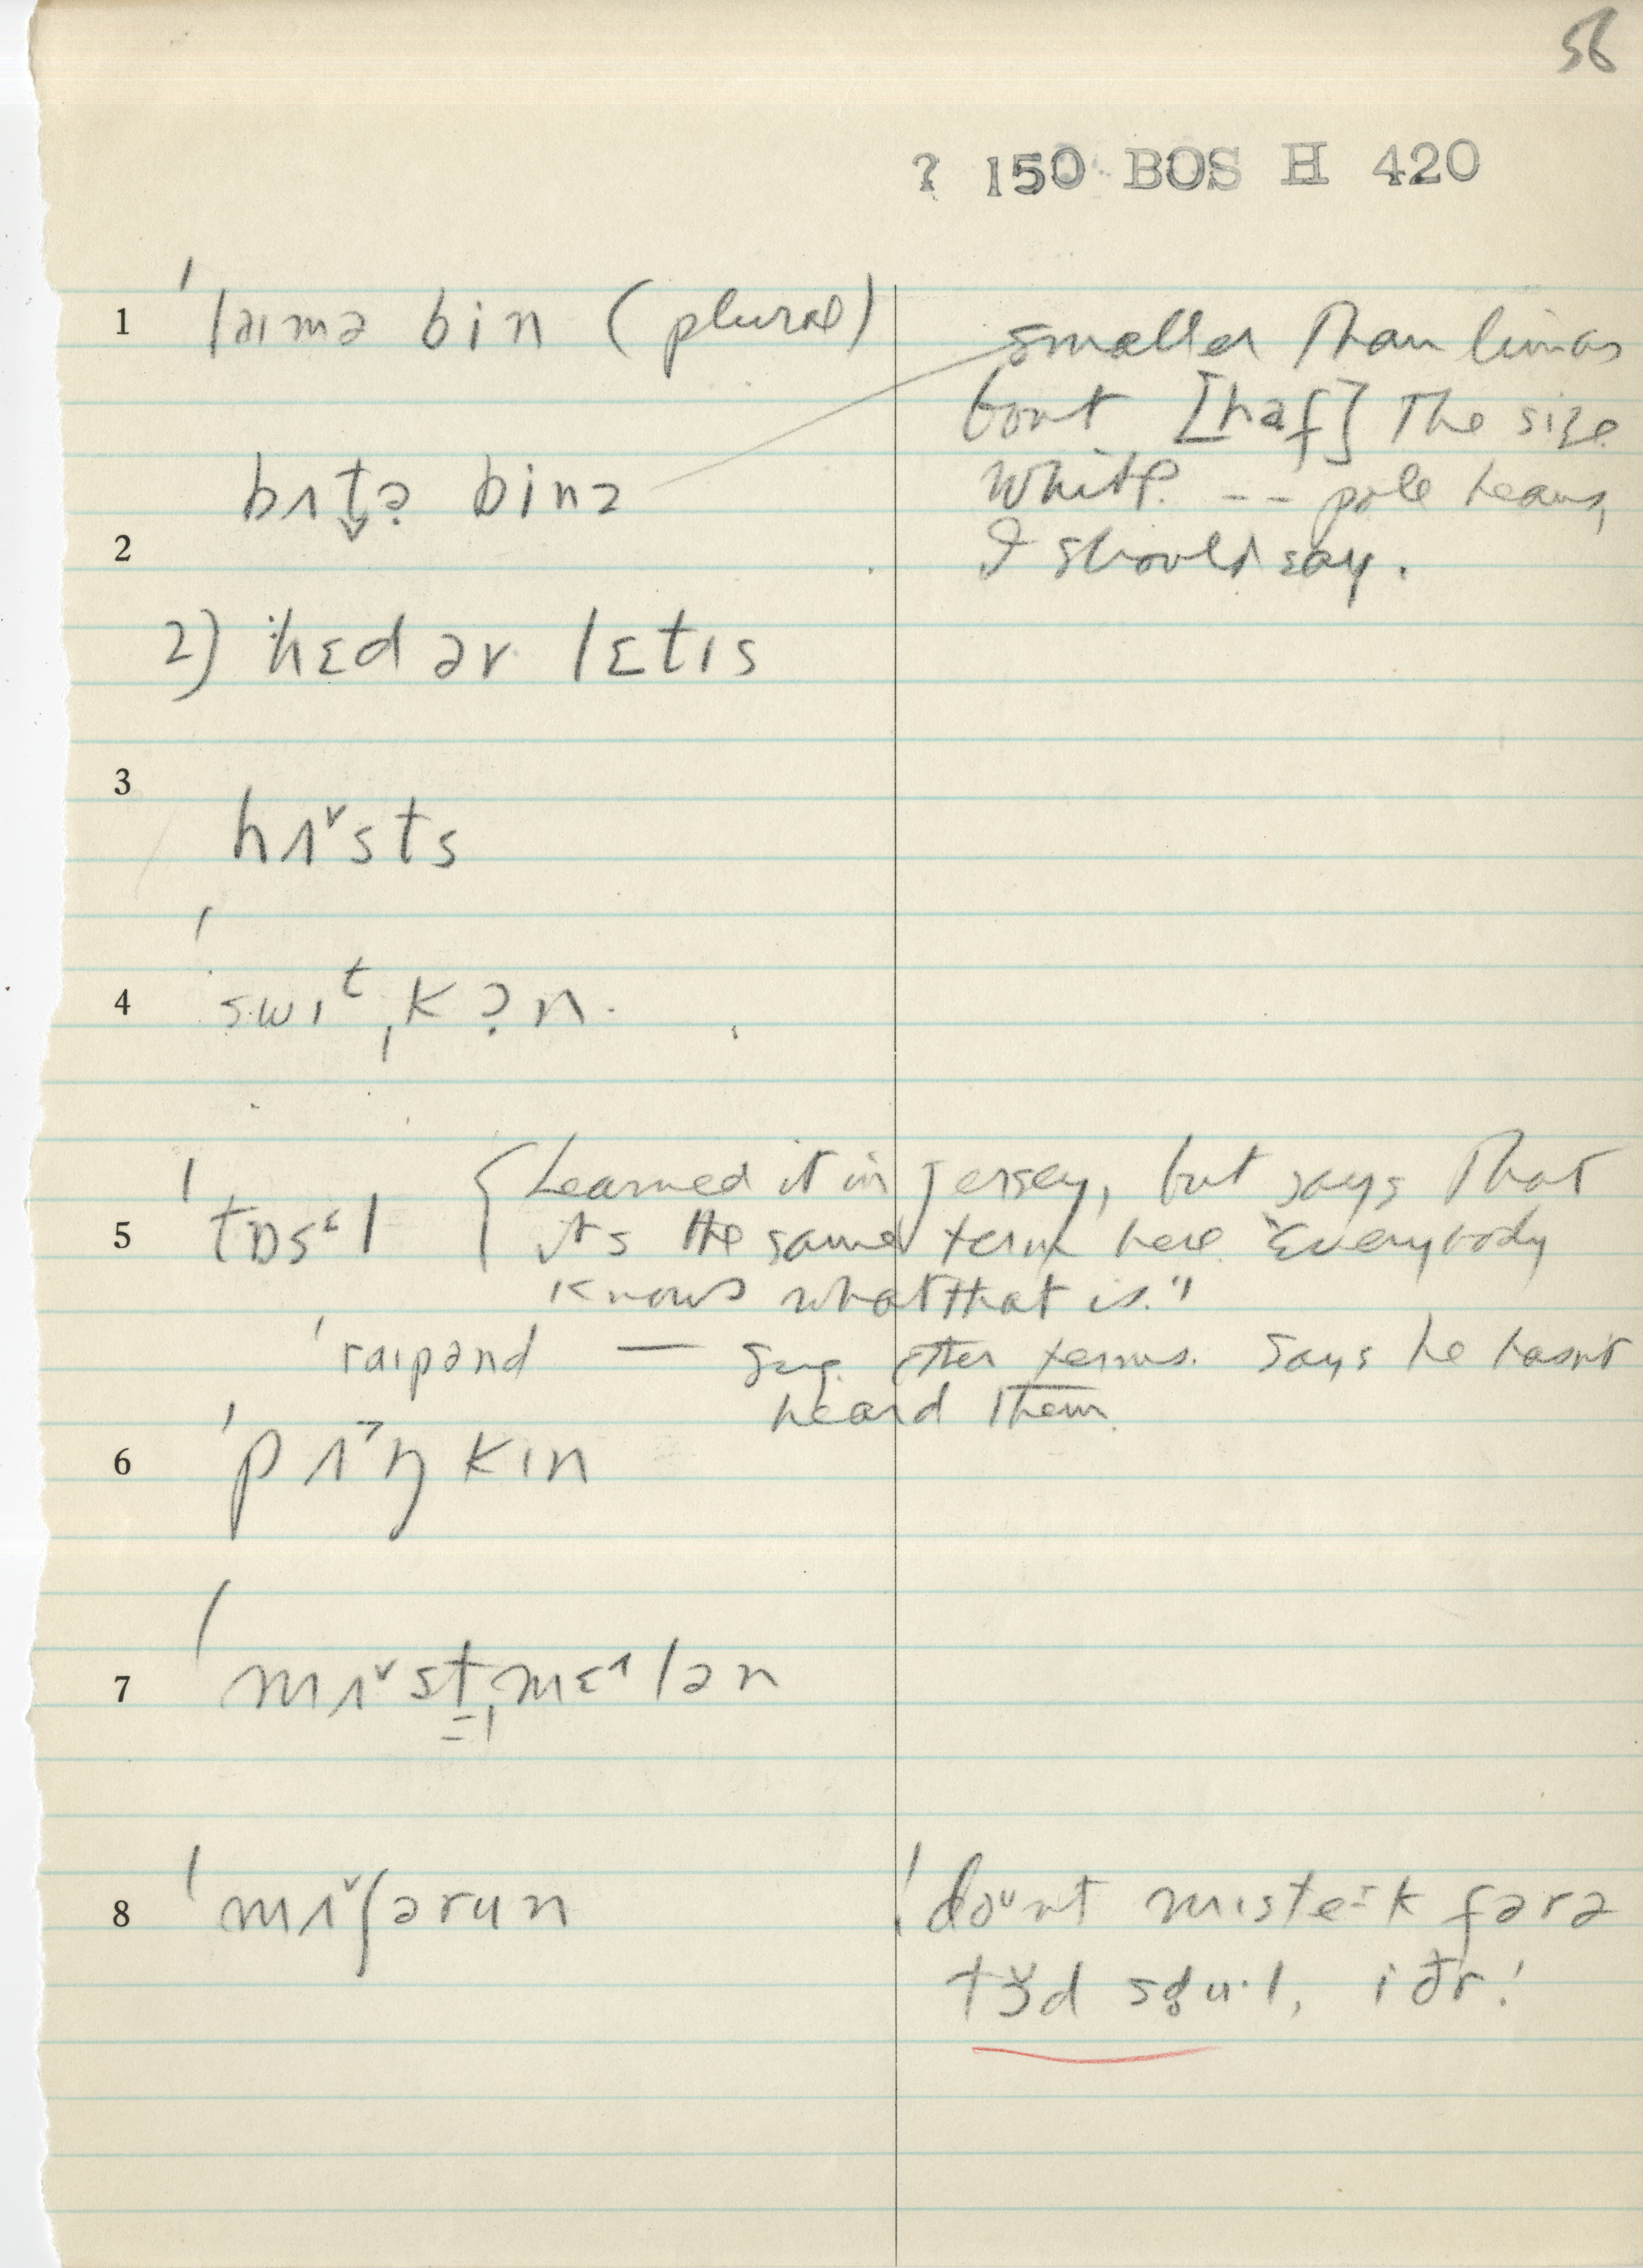 56
? 150 BOS H 420
1 ˈlaɪmə bin (plural)
smaller than limas
bout [haf] the size
white. -- pole beans,
I should say.
bʌt̬ə binz
2
2) ˈhɛd ər lɛtɪs
3
hʌ˅sts
4 ˈswiᵗˌkɔn
5 ˈtɒsᵋl { Learned it in Jersey, but says that
it's the same term here. "Everybody
knows what that is."
ˈraɪpənd — sug. other terms. Says he hasn't
heard them.
6 ˈpʌ˃ŋkɪn
7 ˈmʌ˅stˌmɛ˄lən
8 ˈmʌ˅ʃərun
ˈdoᵘnt mɪsteɪk fərə
to̬d sdu·l, iðr!